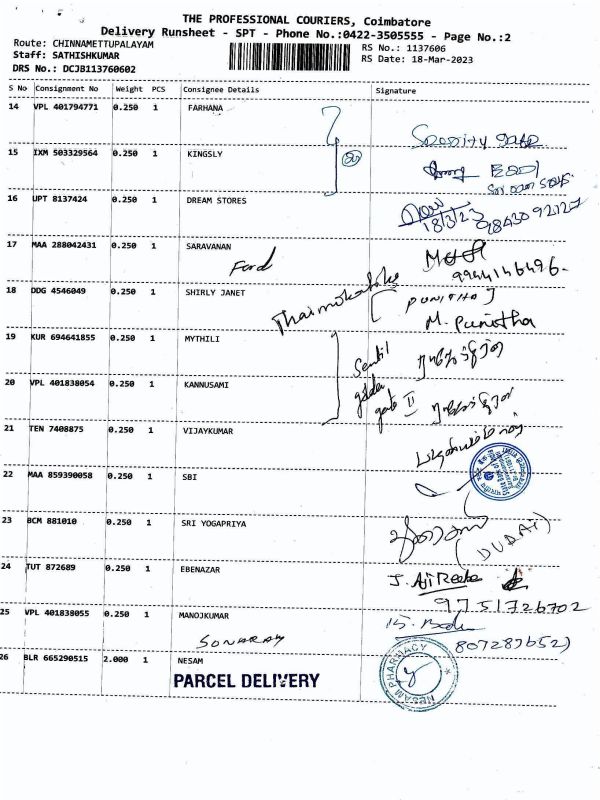 THE PROFESSIONAL COURIERS, Coimbatore
Delivery Runsheet - SPT - Phone No.:0422-3505555 - Page No.:2
Route: CHINNAMETTUPALAYAM
RS No.: 1137606
Staff: SATHISHKUMAR
RS Date: 18-Mar-2023
DRS No.: DCJB113760602
S No Consignment No Weight PCS Consignee Details Signature
14 VPL 401794771 0.250 1 FARHANA
15 IXM 503329564 0.250 1 KINGSLY
16 UPT 8137424 0.250 1 DREAM STORES
18/3/23 9843092127
17 MAA 288042431 0.250 1 SARAVANAN
Ford
9944146496.
18 DDG 4546049 0.250 1 SHIRLY JANET
PUNITHA J
M. Punitha
19 KUR 694641855 0.250 1 MYTHILI
20 VPL 401838054 0.250 1 KANNUSAMI
gate II
21 TEN 7408875 0.250 1 VIJAYKUMAR
22 MAA 859390058 0.250 1 SBI
23 BCM 881010 0.250 1 SRI YOGAPRIYA
24 TUT 872689 0.250 1 EBENAZAR
9751726702
25 VPL 401838055 0.250 1 MANOJKUMAR
26 BLR 665290515 2.000 1 NESAM
PARCEL DELIVERY
NESAM PHARMACY